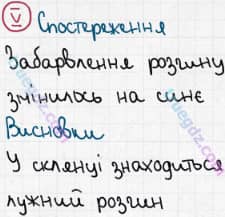 V Спостереження
Забарвлення розчину
змінилось на синє
Висновки
У склянці знаходиться
лужний розчин